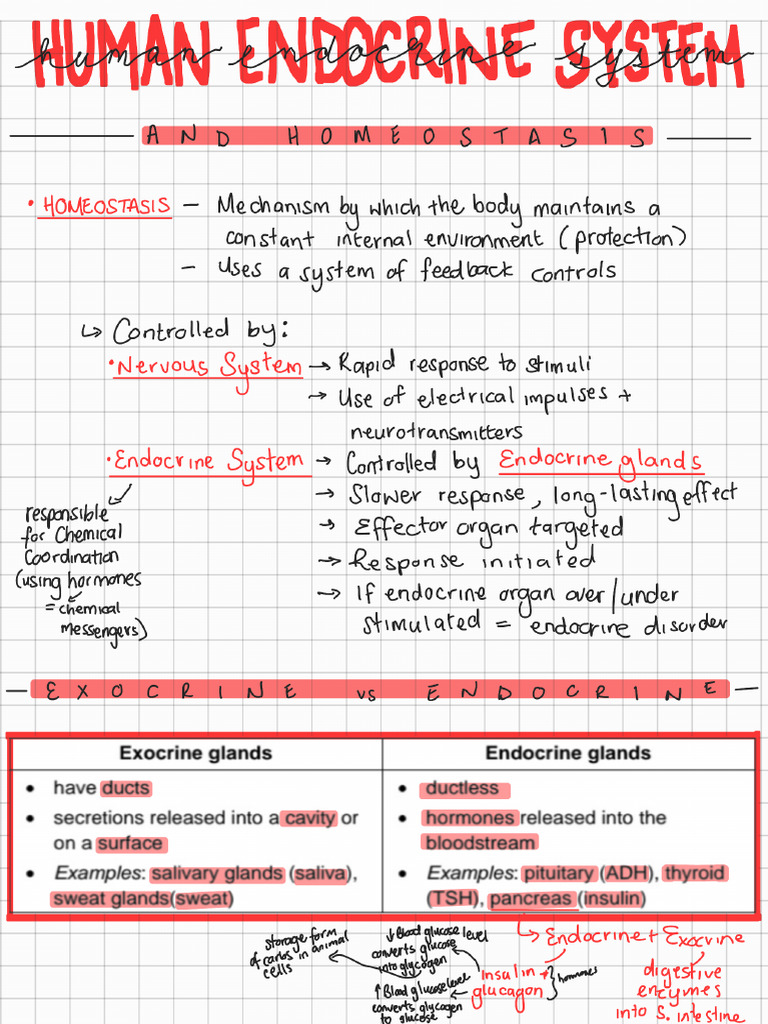 HUMAN ENDOCRINE SYSTEM
human endocrine system
AND HOMEOSTASIS
• HOMEOSTASIS – Mechanism by which the body maintains a
constant internal environment (protection)
– Uses a system of feedback controls
↳ Controlled by:
• Nervous System → Rapid response to stimuli
→ Use of electrical impulses +
neurotransmitters
• Endocrine System → Controlled by Endocrine glands
→ Slower response, long-lasting effect
→ Effector organ targeted
→ Response initiated
→ If endocrine organ over/under
stimulated = endocrine disorder
responsible
for Chemical
Coordination
(using hormones
= chemical
messengers)
EXOCRINE vs ENDOCRINE
Exocrine glands
• have ducts
• secretions released into a cavity or
on a surface
• Examples: salivary glands (saliva),
sweat glands(sweat)
Endocrine glands
• ductless
• hormones released into the
bloodstream
• Examples: pituitary (ADH), thyroid
(TSH), pancreas (insulin)
↳ Endocrine + Exocrine
digestive
enzymes
into S. intestine
insulin +
glucagon
hormones
↓ Blood glucose level
converts glucose
into glycogen
storage form
of carbs in animal
cells
↑ Blood glucose level
converts glycogen
to glucose